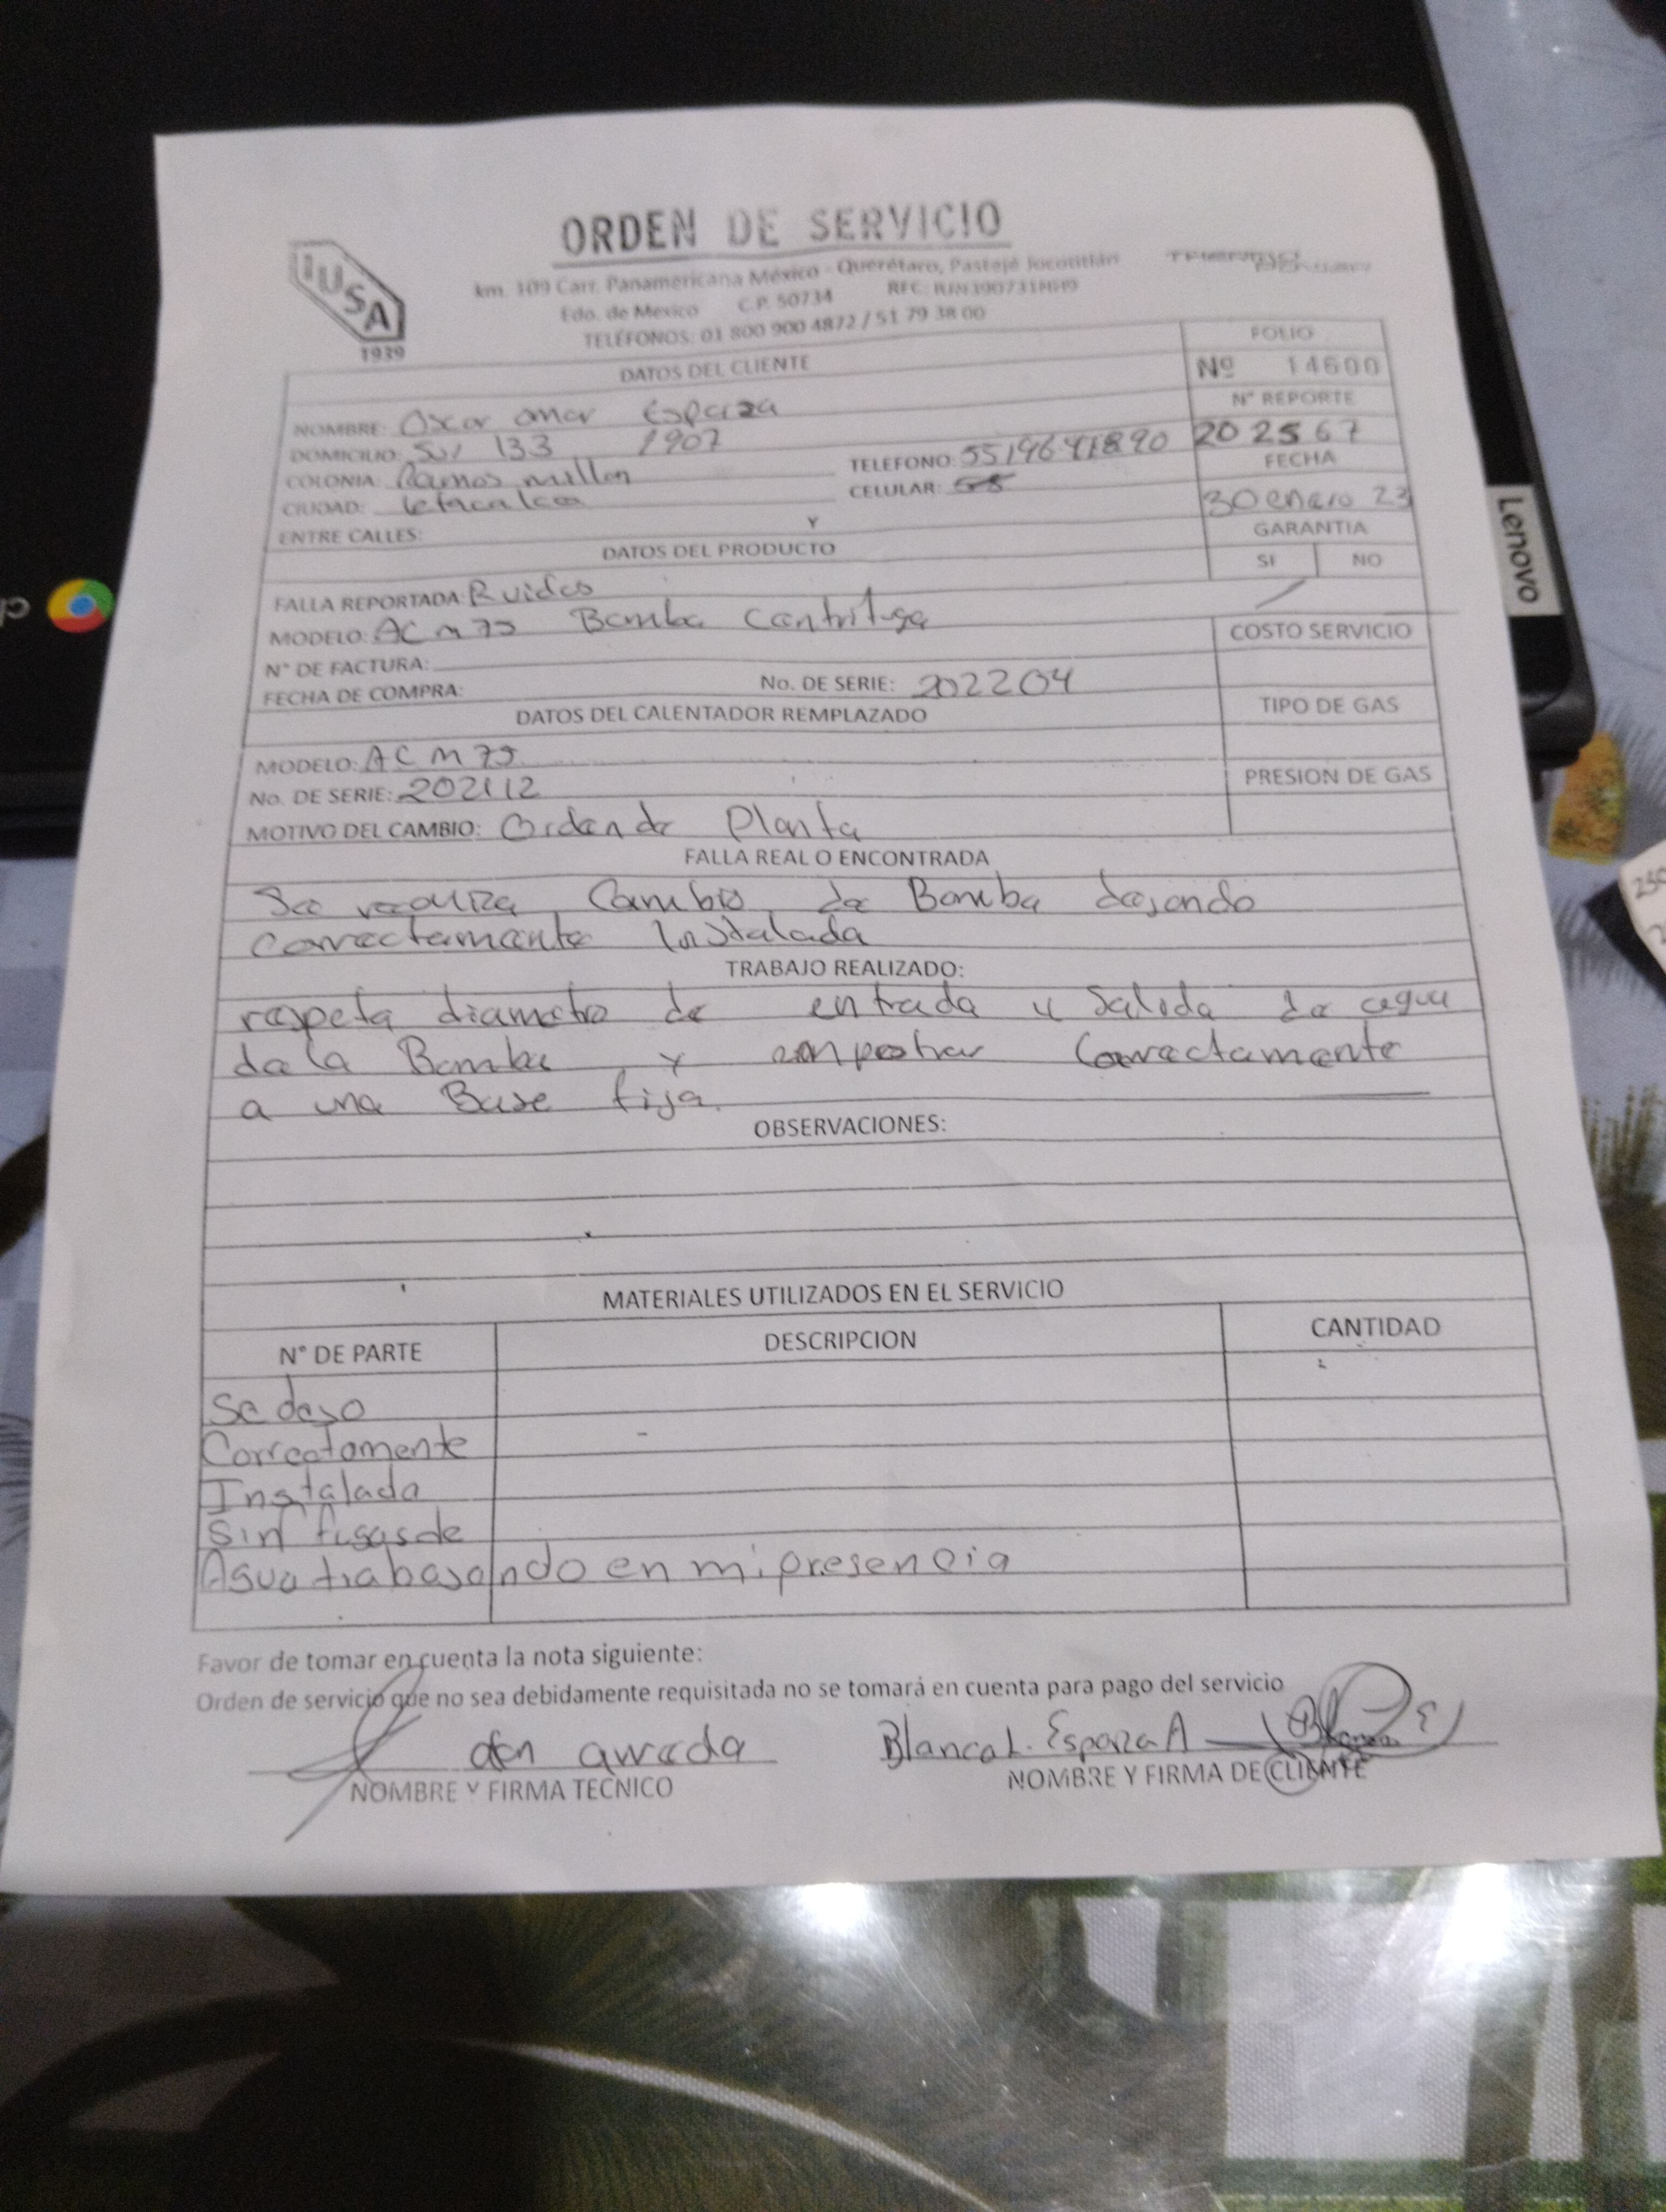 ORDEN DE SERVICIO
IUSA
1939
km. 109 Carr. Panamericana México - Querétaro, Pastejé Jocotitlán
Edo. de Mexico C.P. 50734 REC:
TELÉFONOS: 01 800 900 4872 / 51 79 38 00
FOLIO
DATOS DEL CLIENTE
Nº 14600
NOMBRE: Oscar omar Esparza
N° REPORTE
DOMICILIO: Sur 133 1907
202567
COLONIA: Ramos millan
TELEFONO:
FECHA
CIUDAD: Iztacalco
CELULAR:
30 enero 23
ENTRE CALLES: Y
GARANTIA
DATOS DEL PRODUCTO
SI NO
FALLA REPORTADA: Ruidos
MODELO: ACM75 Bomba Centrifuga
COSTO SERVICIO
N° DE FACTURA:
FECHA DE COMPRA: No. DE SERIE: 202204
TIPO DE GAS
DATOS DEL CALENTADOR REMPLAZADO
MODELO: ACM75
PRESION DE GAS
No. DE SERIE: 202112
MOTIVO DEL CAMBIO: Orden de Planta
FALLA REAL O ENCONTRADA
Se realiza Cambio de Bomba dejando
correctamente Instalada
TRABAJO REALIZADO:
respeta diametro de entrada y Salida de agua
de la Bomba y empotrar Correctamente
a una Base fija.
OBSERVACIONES:
MATERIALES UTILIZADOS EN EL SERVICIO
N° DE PARTE DESCRIPCION CANTIDAD
Se dejo
Correctamente
Instalada
Sin fugas de
Agua trabajando en mi presencia
Favor de tomar en cuenta la nota siguiente:
Orden de servicio que no sea debidamente requisitada no se tomará en cuenta para pago del servicio
Blanca L. Esparza A
NOMBRE Y FIRMA TECNICO
NOMBRE Y FIRMA DE CLIENTE
Lenovo